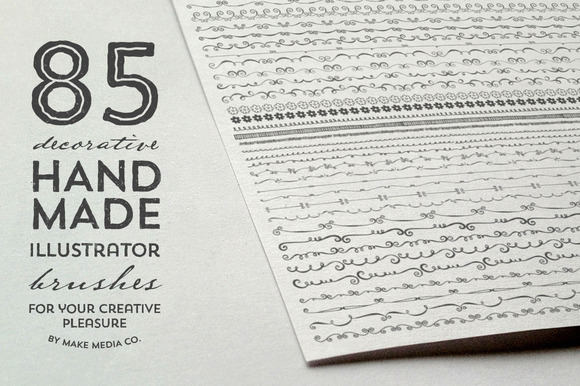 85
decorative
HAND
MADE
ILLUSTRATOR
brushes
FOR YOUR CREATIVE
PLEASURE
BY MAKE MEDIA CO.